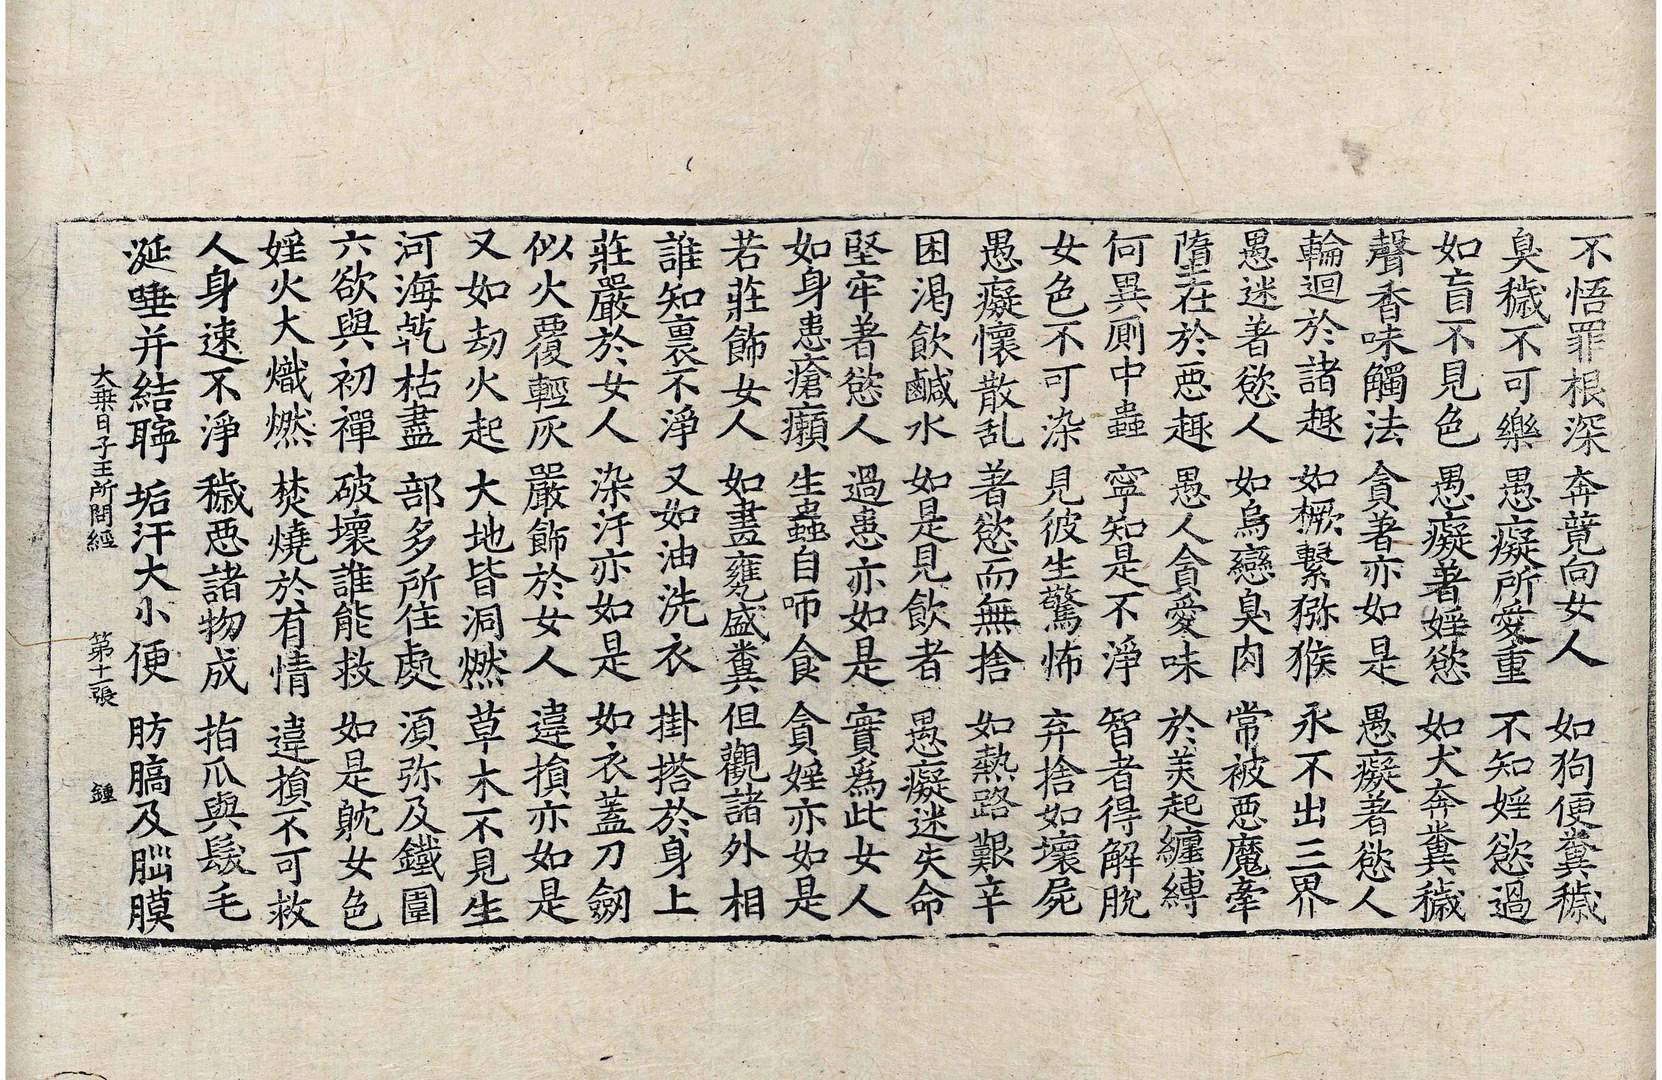 不悟罪根深 奔蕶向女人 如狗便糞穢
臭穢不可樂 愚癡所愛重 不知婬慾過
如盲不見色 愚癡著婬慾 如犬奔糞穢
聲香味觸法 貪著亦如是 愚癡著慾人
輪迴於諸趣 如橛繫猕猴 永不出三界
愚迷著慾人 如烏戀臭肉 常被惡魔牽
墮在於惡趣 愚人貪愛味 於美起纏縛
何異厠中蟲 寧知是不淨 智者得解脫
女色不可染 見彼生驚怖 弃捨如壞屍
愚癡懷散乱 著慾而無捨 如熱路艱辛
困渴飲鹹水 如是見飲者 愚癡迷失命
堅牢著慾人 過患亦如是 實爲此女人
如身患瘡癩 生蟲自咂食 貪婬亦如是
若莊飾女人 如畫甕盛糞 但觀諸外相
誰知裏不淨 又如油洗衣 掛搭於身上
莊嚴於女人 染汙亦如是 如衣蓋刀劒
似火覆輕灰 嚴飾於女人 違損亦如是
又如劫火起 大地皆洞燃 草木不見生
河海乾枯盡 部多所住處 須弥及鐵圍
六欲與初禪 破壞誰能救 如是躭女色
婬火大熾燃 焚燒於有情 違損不可救
人身速不淨 穢惡諸物成 指爪與髮毛
涎唾并結聹 垢汗大小便 肪膏及腦膜
大乗日子王所問經 第十一張 鍾